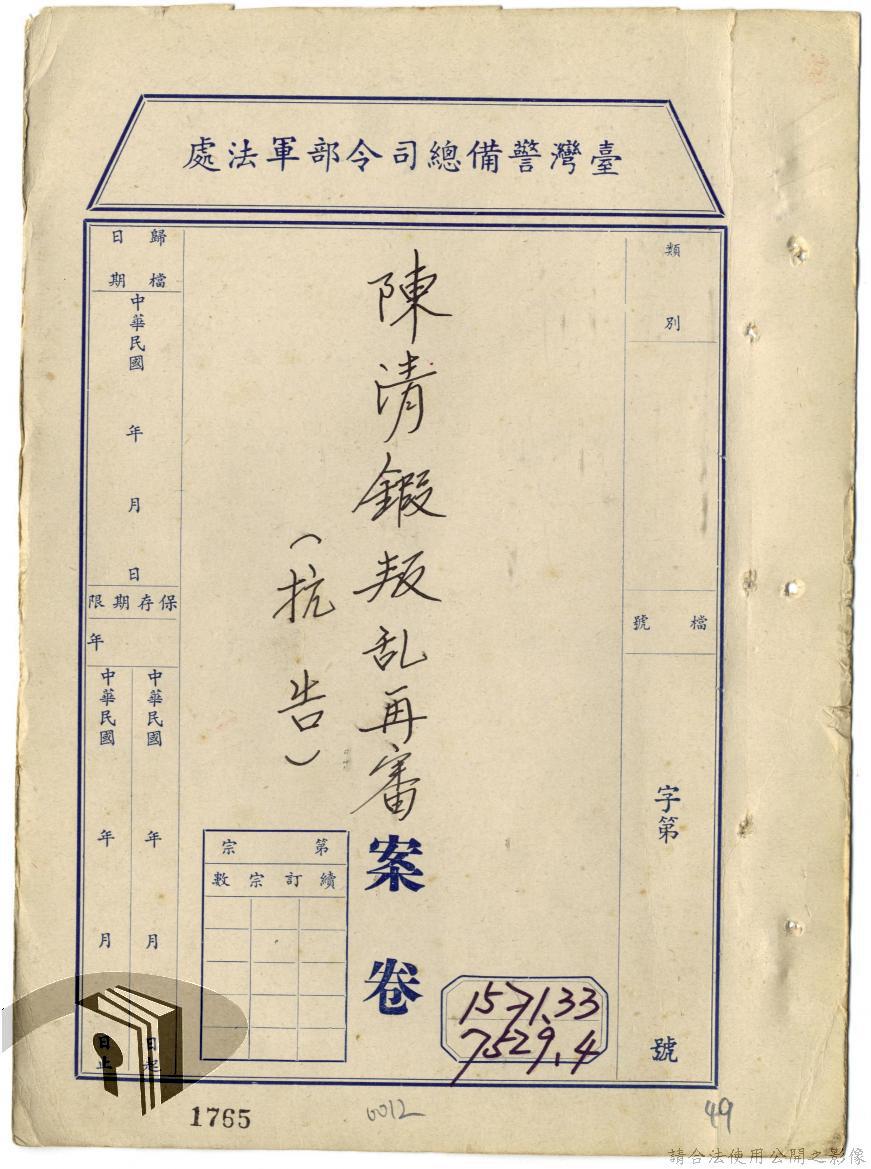 臺灣警備總司令部軍法處
類別
檔號
字第
號
陳清鍜叛乱再審
(抗告)
案卷
歸檔
日期
中華民國
年
月
日
保存期限
年
中華民國
年
月
日起
中華民國
年
月
日止
第宗
續訂宗數
1571.33
7529.4
1765
0012
49
請合法使用公開之影像